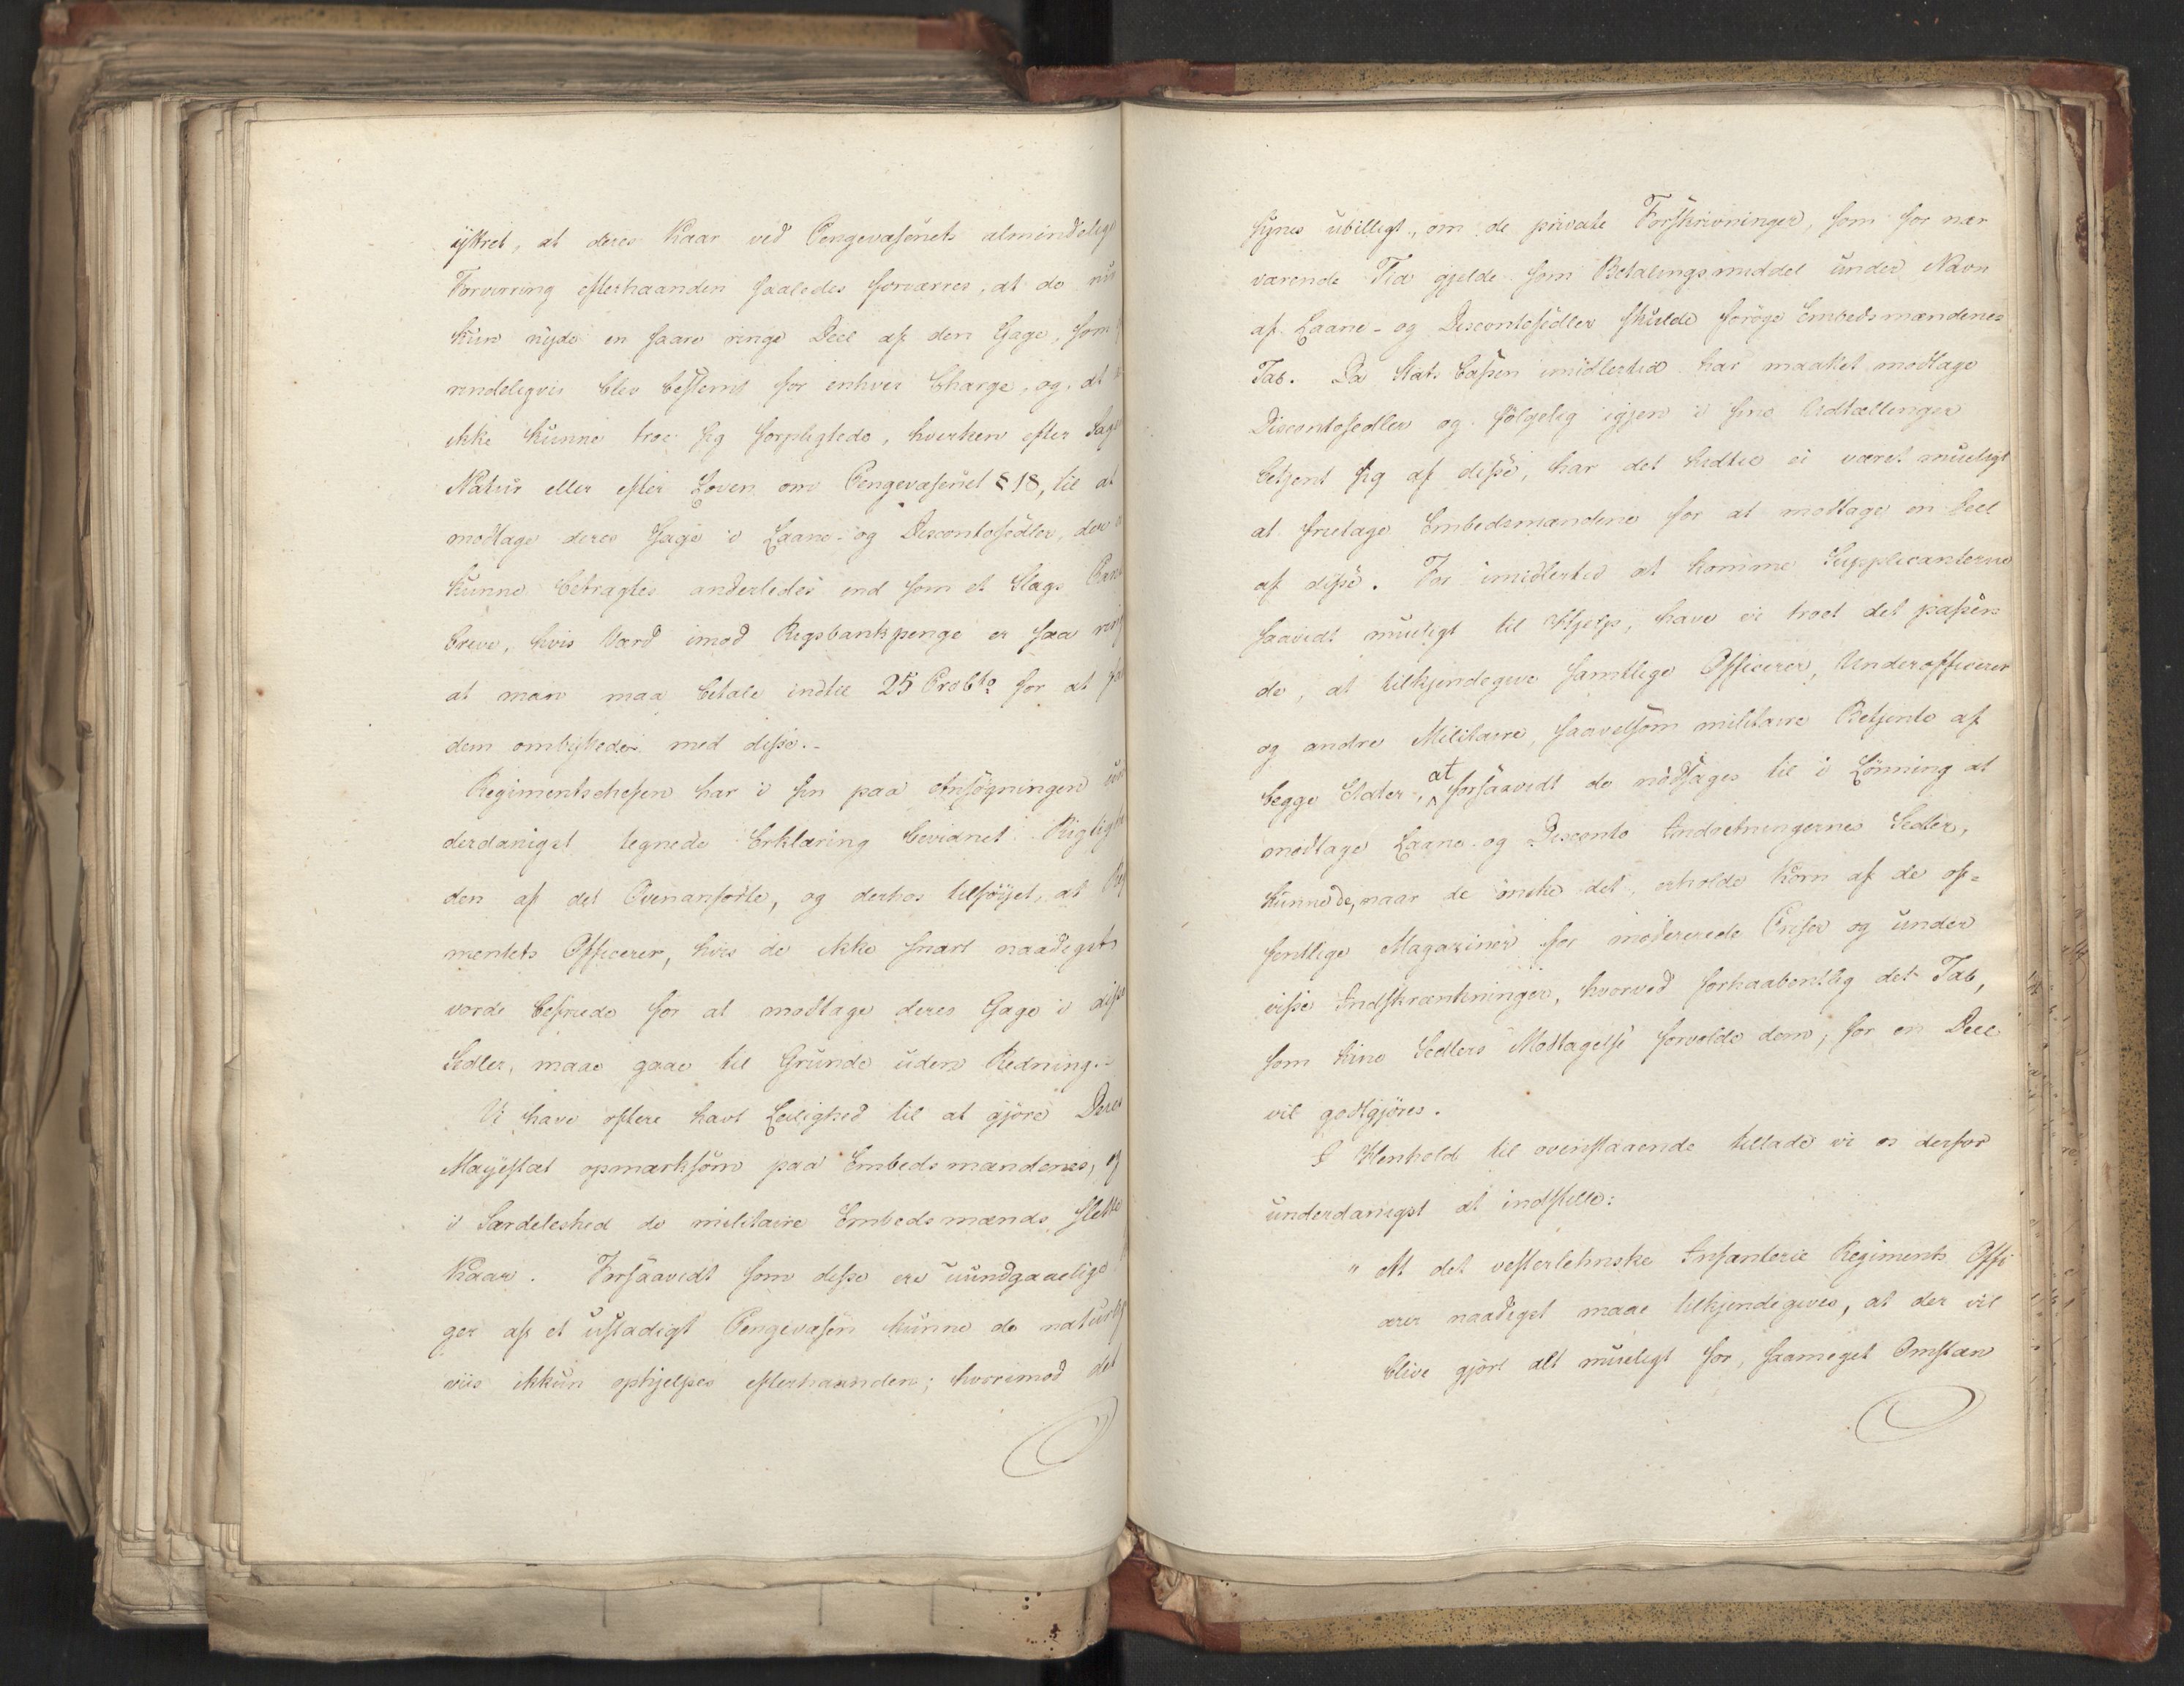 yttret, at deres Kaar ved Pengevæsenets almindelige
Forvirring efterhaanden saaledes forværres, at de nu
kun nyde en saare ringe Deel af den Gage, som
rindeligvis blev bestemt for enhver Charge, og at
ikke kunne troe sig forpligtede, hverken efter Sage
Natur eller efter Loven om Pengevæsenet § 18, til at
modtage deres Gage i Laane- og Discontosedler, der
kunne betragtes anderledes end som et Slags Pant
breve, hvis Værd imod Rigsbankpenge er saa ring
at man maa betale indtil 25 Procto for at faa
dem ombyttede med disse.-
Regimentschefen har i sin paa Ansögningen un
derdanigst tegnede Erklæring bevidnet Rigtighe
den af det Ovenanförte, og derhos tilföiet, at Re
mentets Officerer, hvis de ikke snart naadigst
vorde befriede for at modtage deres Gage i disse
Sedler, maae gaae til Grunde uden Redning.-
Vi have oftere havt Leilighed til at gjöre Deres
Mayestæt opmærksom paa Embedsmændenes, og
i Særdeleshed de militaire Embedsmænds slette
Kaar. Forsaavidt som disse ere uundgaaelige
ger af et ustadigt Pengevæsen kunne de naturlig
viis ikkun ophjelpes efterhaanden; hvorimod det
synes ubilligt, om de private Forskrivninger, som for nær
værende Tid gjelde som Betalingsmiddel under Navn
af Laane- og Discontosedler skulde foröge Embedsmændenes
Tab. Da Stats Cassen imidlertid har maattet modtage
Discontosedler og fölgelig igjen i sine Udtællinger
betjent sig af disse, har det hidtil ei været mueligt
at fritage Embedsmændene for at modtage en Deel
af disse. For imidlertid at komme Supplicanterne
saavidt mueligt til Hjelp, have vi troet det passen
de, at tilkjendegive samtlige Officerer, Underofficerer
og andre Militaire, saavelsom militaire Betjente af
begge Etater, at forsaavidt de nödsages til i Lönning at
modtage Laane- og Disconto Indretningernes Sedler,
kunne de, naar de önske det, erholde Korn af de of-
fentlige Magaziner for modererede Priser og under
visse Indskrænkninger, hvorved forhaabentlig det Tab,
som hine Sedlers Modtagelse forvolde dem, for en Deel
vil godtgjöres.
I Henhold til ovenstaaende tillade vi os derfor
underdanigst at indstille:
" At det vesterlehnske Infanterie Regiments Offi
cerer naadigst maae tilkjendegives, at der vil
blive gjort alt mueligt for, saameget Omstæn